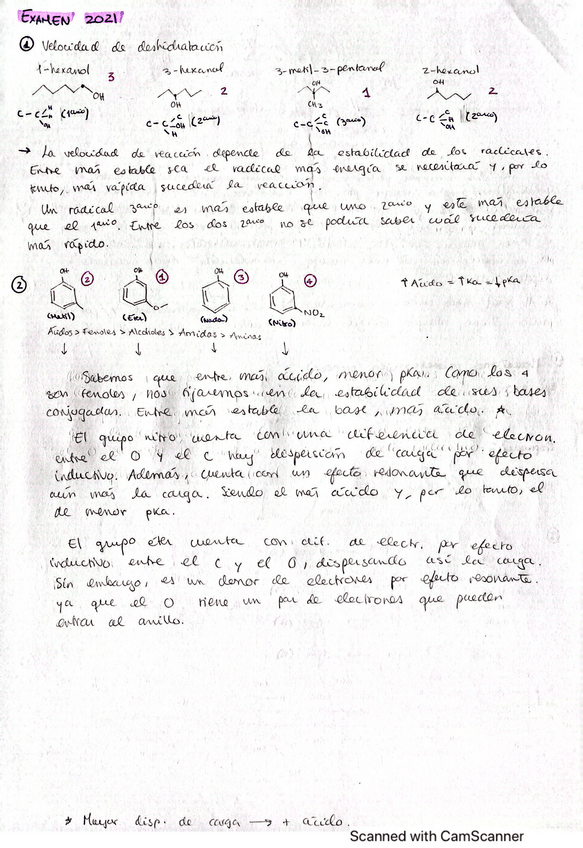 EXAMEN 2021
① Velocidad de deshidratación
1-hexanol 3 3-hexanol 2 3-metil-3-pentanol 1 2-hexanol 2
OH OH OH CH3 OH
C-C H H OH (1ario) C-C C OH H (2ario) C-C C C OH (3ario) C-C C OH H (2ario)
→ La velocidad de reacción depende de la estabilidad de los radicales.
Entre más estable sea el radical más energía se necesitará y, por lo
tanto, más rápida sucederá la reacción.
Un radical 3ario es más estable que uno 2ario y este más estable
que el 1ario. Entre los dos 2ario no se podría saber cuál sucedería
más rápido.
② OH ② OH ① OH ③ OH ④ ↑ Ácido = ↑Ka = ↓pKa
O NO2
(Metil) (Éter) (Nada) (Nitro)
Ácidos > Fenoles > Alcoholes > Amidas > Aminas
↓ ↓ ↓ ↓
Sabemos que entre más ácido, menor pKa. Como los 4
son fenoles, nos fijaremos en la estabilidad de sus bases
conjugadas. Entre más estable la base, más ácido. *
El grupo nitro cuenta con una diferencia de electron.
entre el O y el C hay dispersión de carga por efecto
inductivo. Además, cuenta con un efecto resonante que dispersa
aún más la carga. Siendo el más ácido y, por lo tanto, el
de menor pKa.
El grupo éter cuenta con dif. de electr. por efecto
inductivo entre el C y el O, dispersando así la carga.
Sin embargo, es un donor de electrones por efecto resonante.
ya que el O tiene un par de electrones que pueden
entrar al anillo.
* Mayor disp. de carga → + ácido.
Scanned with CamScanner